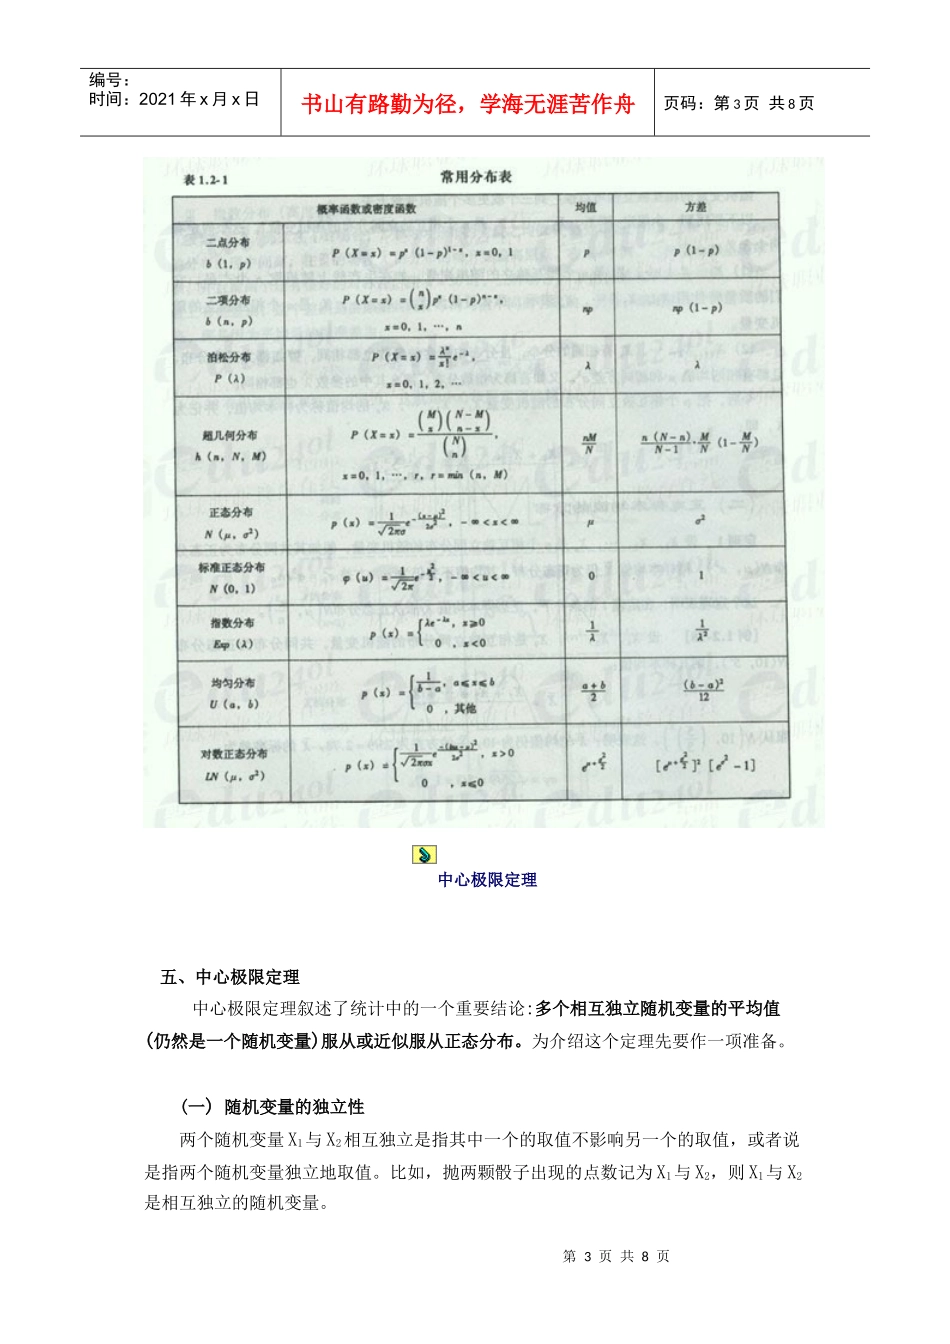 编号：
时间：2021年x月x日
书山有路勤为径，学海无涯苦作舟
页码：第3页 共8页
表1.2-1 常用分布表
概率函数或密度函数 均值 方差
二点分布
b（1，p） P（X=x）=pˣ（1-p）¹⁻ˣ，x=0，1 p p（1-p）
二项分布
b（n，p） P（X=x）=(n x)pˣ（1-p）ⁿ⁻ˣ， np np（1-p）
x=0，1，…，n
泊松分布
P（λ） P（X=x）=λˣ/x! e^-λ， λ λ
x=0，1，2，…
超几何分布
h（n，N，M） P（X=x）=(M x)(N-M n-x)/(N n)， nM/N n（N-n）/N-1·M/N（1-M/N）
x=0，1，…，r，r=min（n，M）
正态分布
N（μ，σ²） p（x）=1/√2πσ e^-(x-μ)²/2σ²，-∞<x<∞ μ σ²
标准正态分布
N（0，1） φ（u）=1/√2π e^-u²/2，-∞<u<∞ 0 1
指数分布
Exp（λ） p（x）={λe^-λx，x⩾0 1/λ 1/λ²
0 ，x<0
均匀分布
U（a，b） p（x）={1/b-a，a⩽x⩽b a+b/2 (b-a)²/12
0 ，其他
对数正态分布
LN（μ，σ²） p（x）={1/√2πσx e^-(lnx-μ)²/2σ²，x>0 e^μ+σ²/2 [e^μ+σ²/2]² [e^σ²-1]
0 ，x⩽0
中心极限定理
五、中心极限定理
中心极限定理叙述了统计中的一个重要结论:多个相互独立随机变量的平均值
(仍然是一个随机变量)服从或近似服从正态分布。为介绍这个定理先要作一项准备。
(一) 随机变量的独立性
两个随机变量X₁与X₂相互独立是指其中一个的取值不影响另一个的取值，或者说
是指两个随机变量独立地取值。比如，抛两颗骰子出现的点数记为X₁与X₂，则X₁与X₂
是相互独立的随机变量。
第 3 页 共 8 页